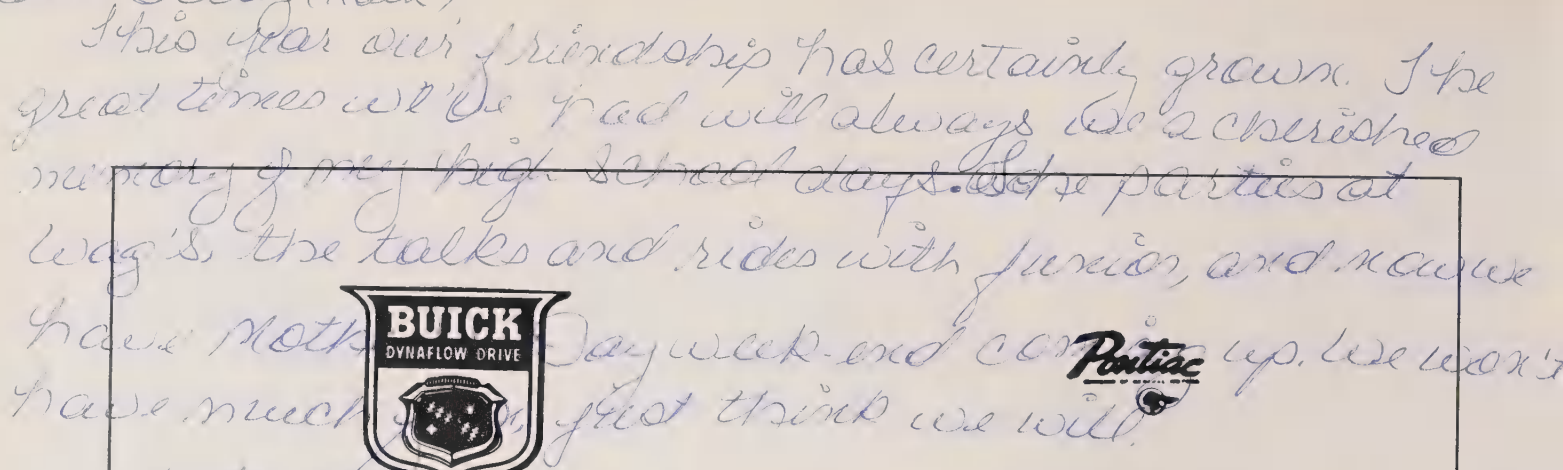 This year our friendship has certainly grown. The
great times we've had will always be a cherished
memory of my high school days. The parties at
Wag's, the talks and rides with Junior, and now we
have Moth Day week-end coming up. We won't
have much, just think we will.
BUICK
DYNAFLOW DRIVE
Pontiac